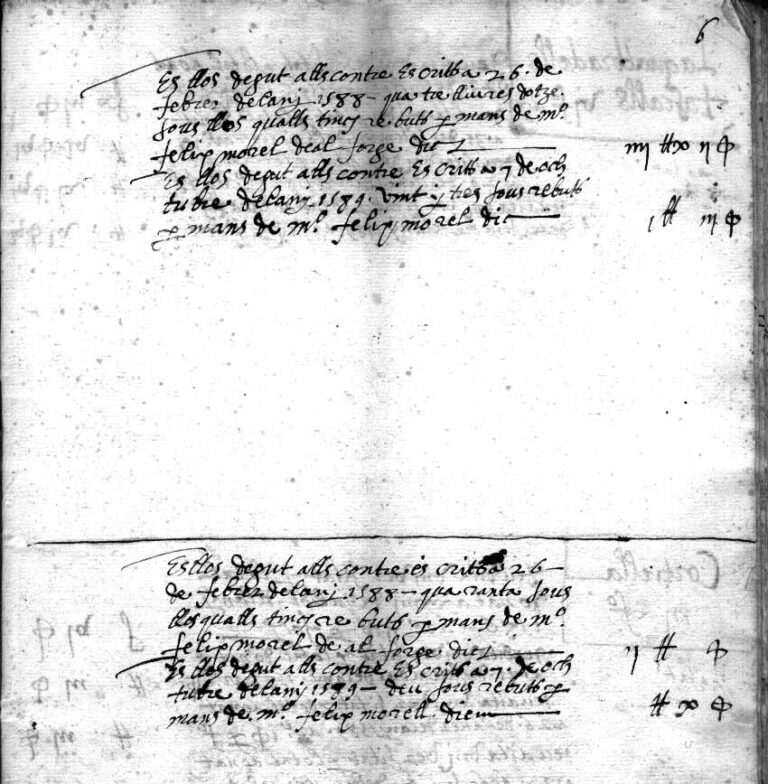 6
Es llos degut alls contre Escrit a 26. de
febrer de lany 1588 – quatre lliures dotze
sous llos qualls tinch rebuts p mans de mº.
felip morel de al forge dic iiij ₶ x ij ϕ
Es llos degut alls contre Escrit a 7 de och
tubre de lany 1589. vint y tres sous rebuts
p mans de mº. felip morel dic j ₶ iij ϕ
Es llos degut alls contre es crit a 26 –
de febrer de lany 1588 – quaranta sous
llos qualls tinch rebuts p mans de mº.
felip morel de al forge dich ij ₶ ϕ
Es llos degut alls contre Escrit a 7. de och
tubre de lany 1589 – deu sous rebuts p
mans de mº. felip morell. dic ₶ x ϕ